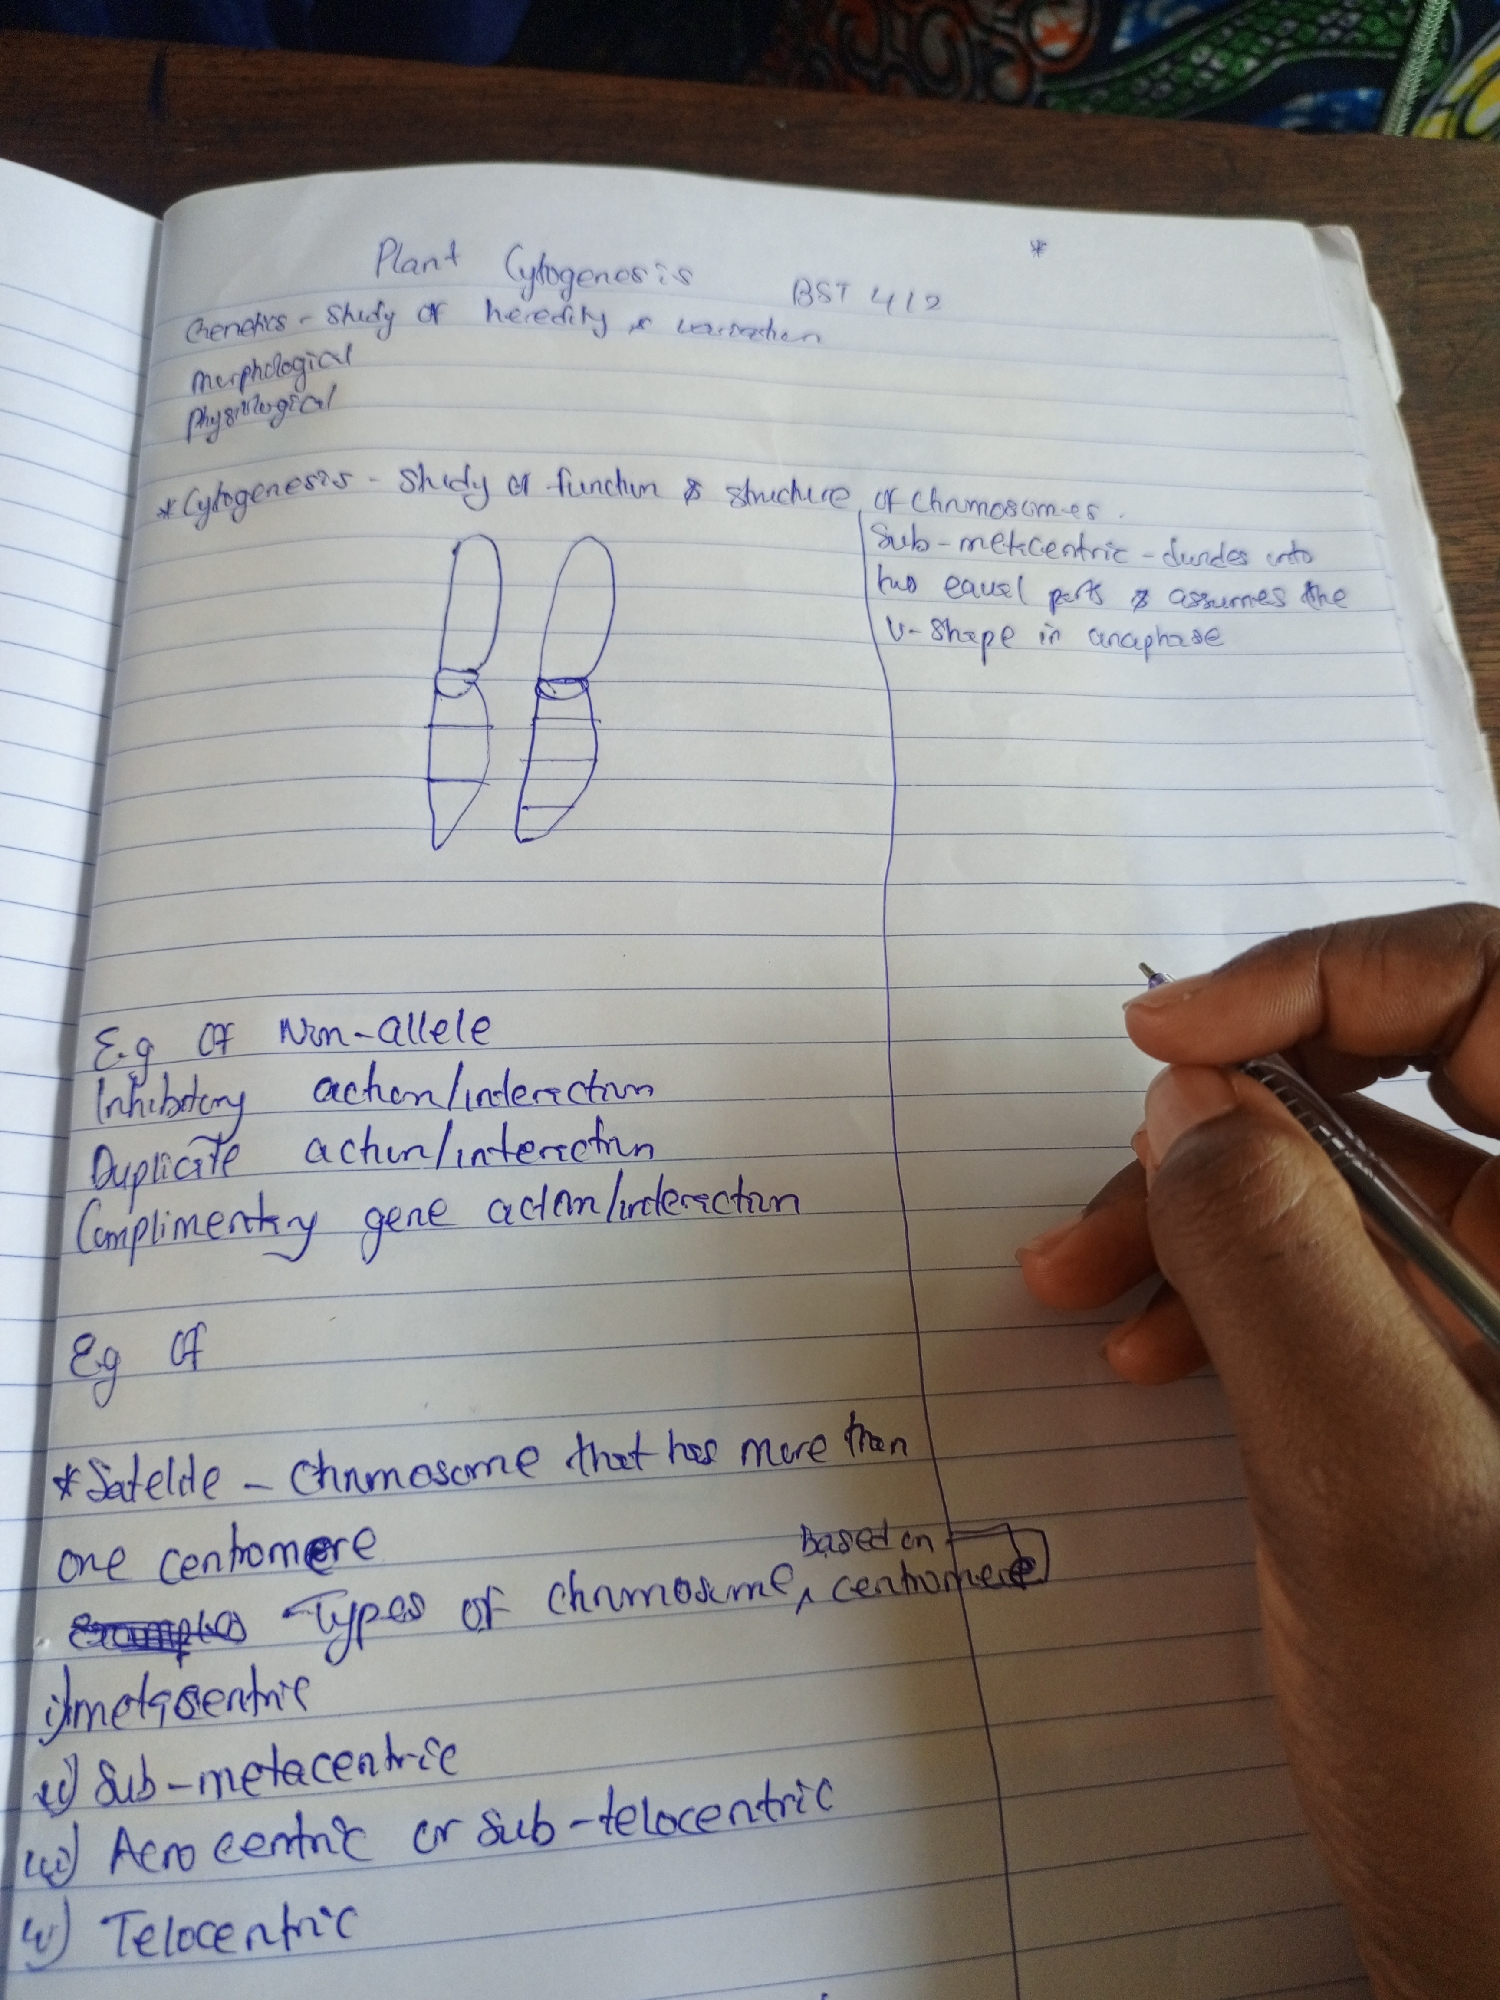 Plant Cytogenesis BST 412
Genetics - Study of heredity & variation
Morphological
Physiological
* Cytogenesis - Study of function & structure of Chromosomes.
Sub-metacentric - divides into
two equal parts & assumes the
V-shape in anaphase
E.g Of Non-allele
Inhibitory action/interaction
Duplicate action/interaction
Complimentary gene action/interaction
Eg Of
* Satelite - Chromosome that has more than
one centromere
Based on
Types of chromosome, centromere
i) metacentric
ii) Sub-metacentric
iii) Acrocentric or Sub-telocentric
iv) Telocentric